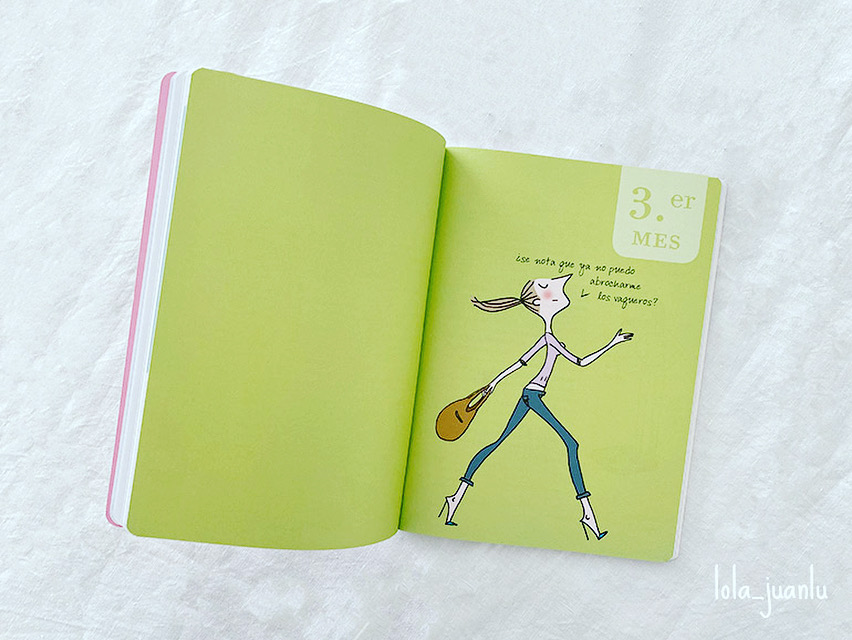 3.er
MES
¿se nota que ya no puedo
abrocharme
los vaqueros?
lola_juanlu